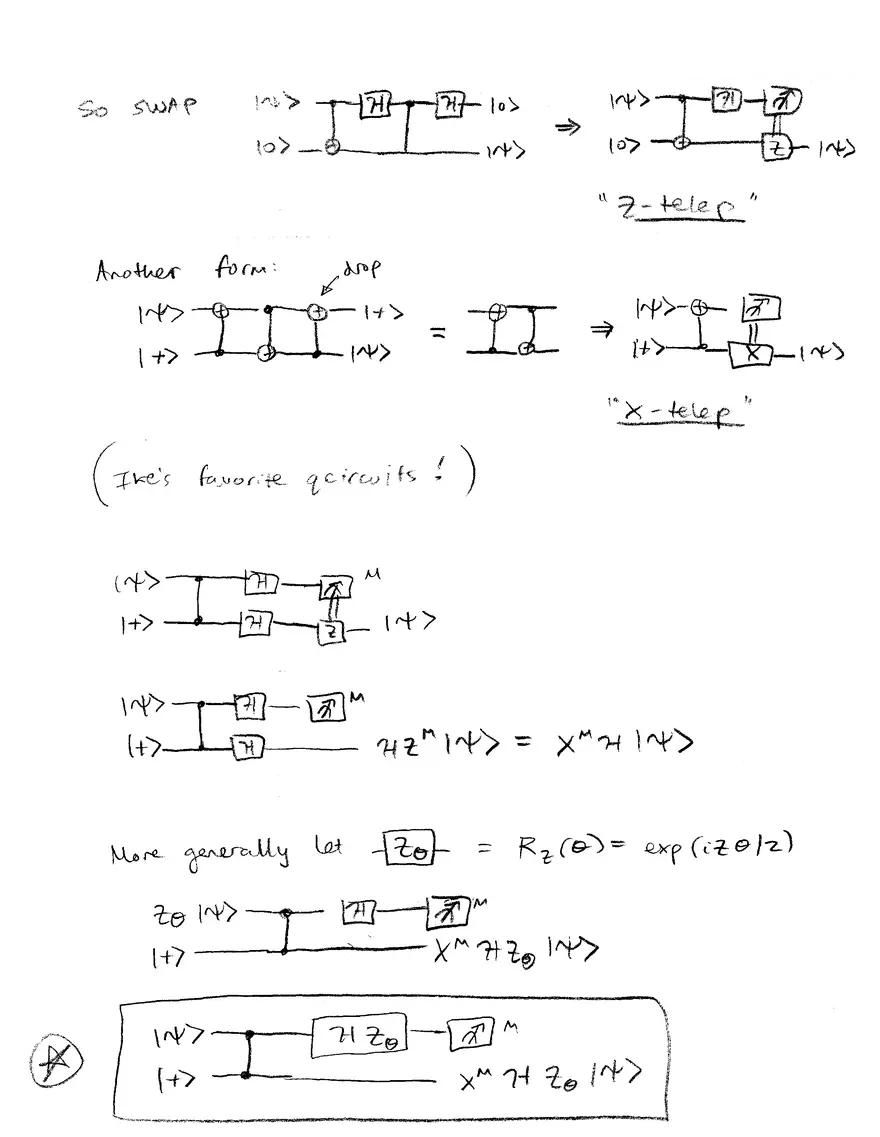 So SWAP |ψ> H H |0> ⇒ |ψ> H
|0> |ψ> |0> Z |ψ>
"Z-telep"
Another form: drop
|ψ> |+> = ⇒ |ψ>
|+> |ψ> |+> X |ψ>
"X-telep"
(Ike's favorite qcircuits!)
|ψ> H M
|+> H Z |ψ>
|ψ> H M
|+> H HZᴹ|ψ> = XᴹH|ψ>
More generally let Zθ = R_Z(θ) = exp(iZθ/2)
Zθ|ψ> H M
|+> XᴹHZθ|ψ>
|ψ> HZθ M
|+> XᴹHZθ|ψ>